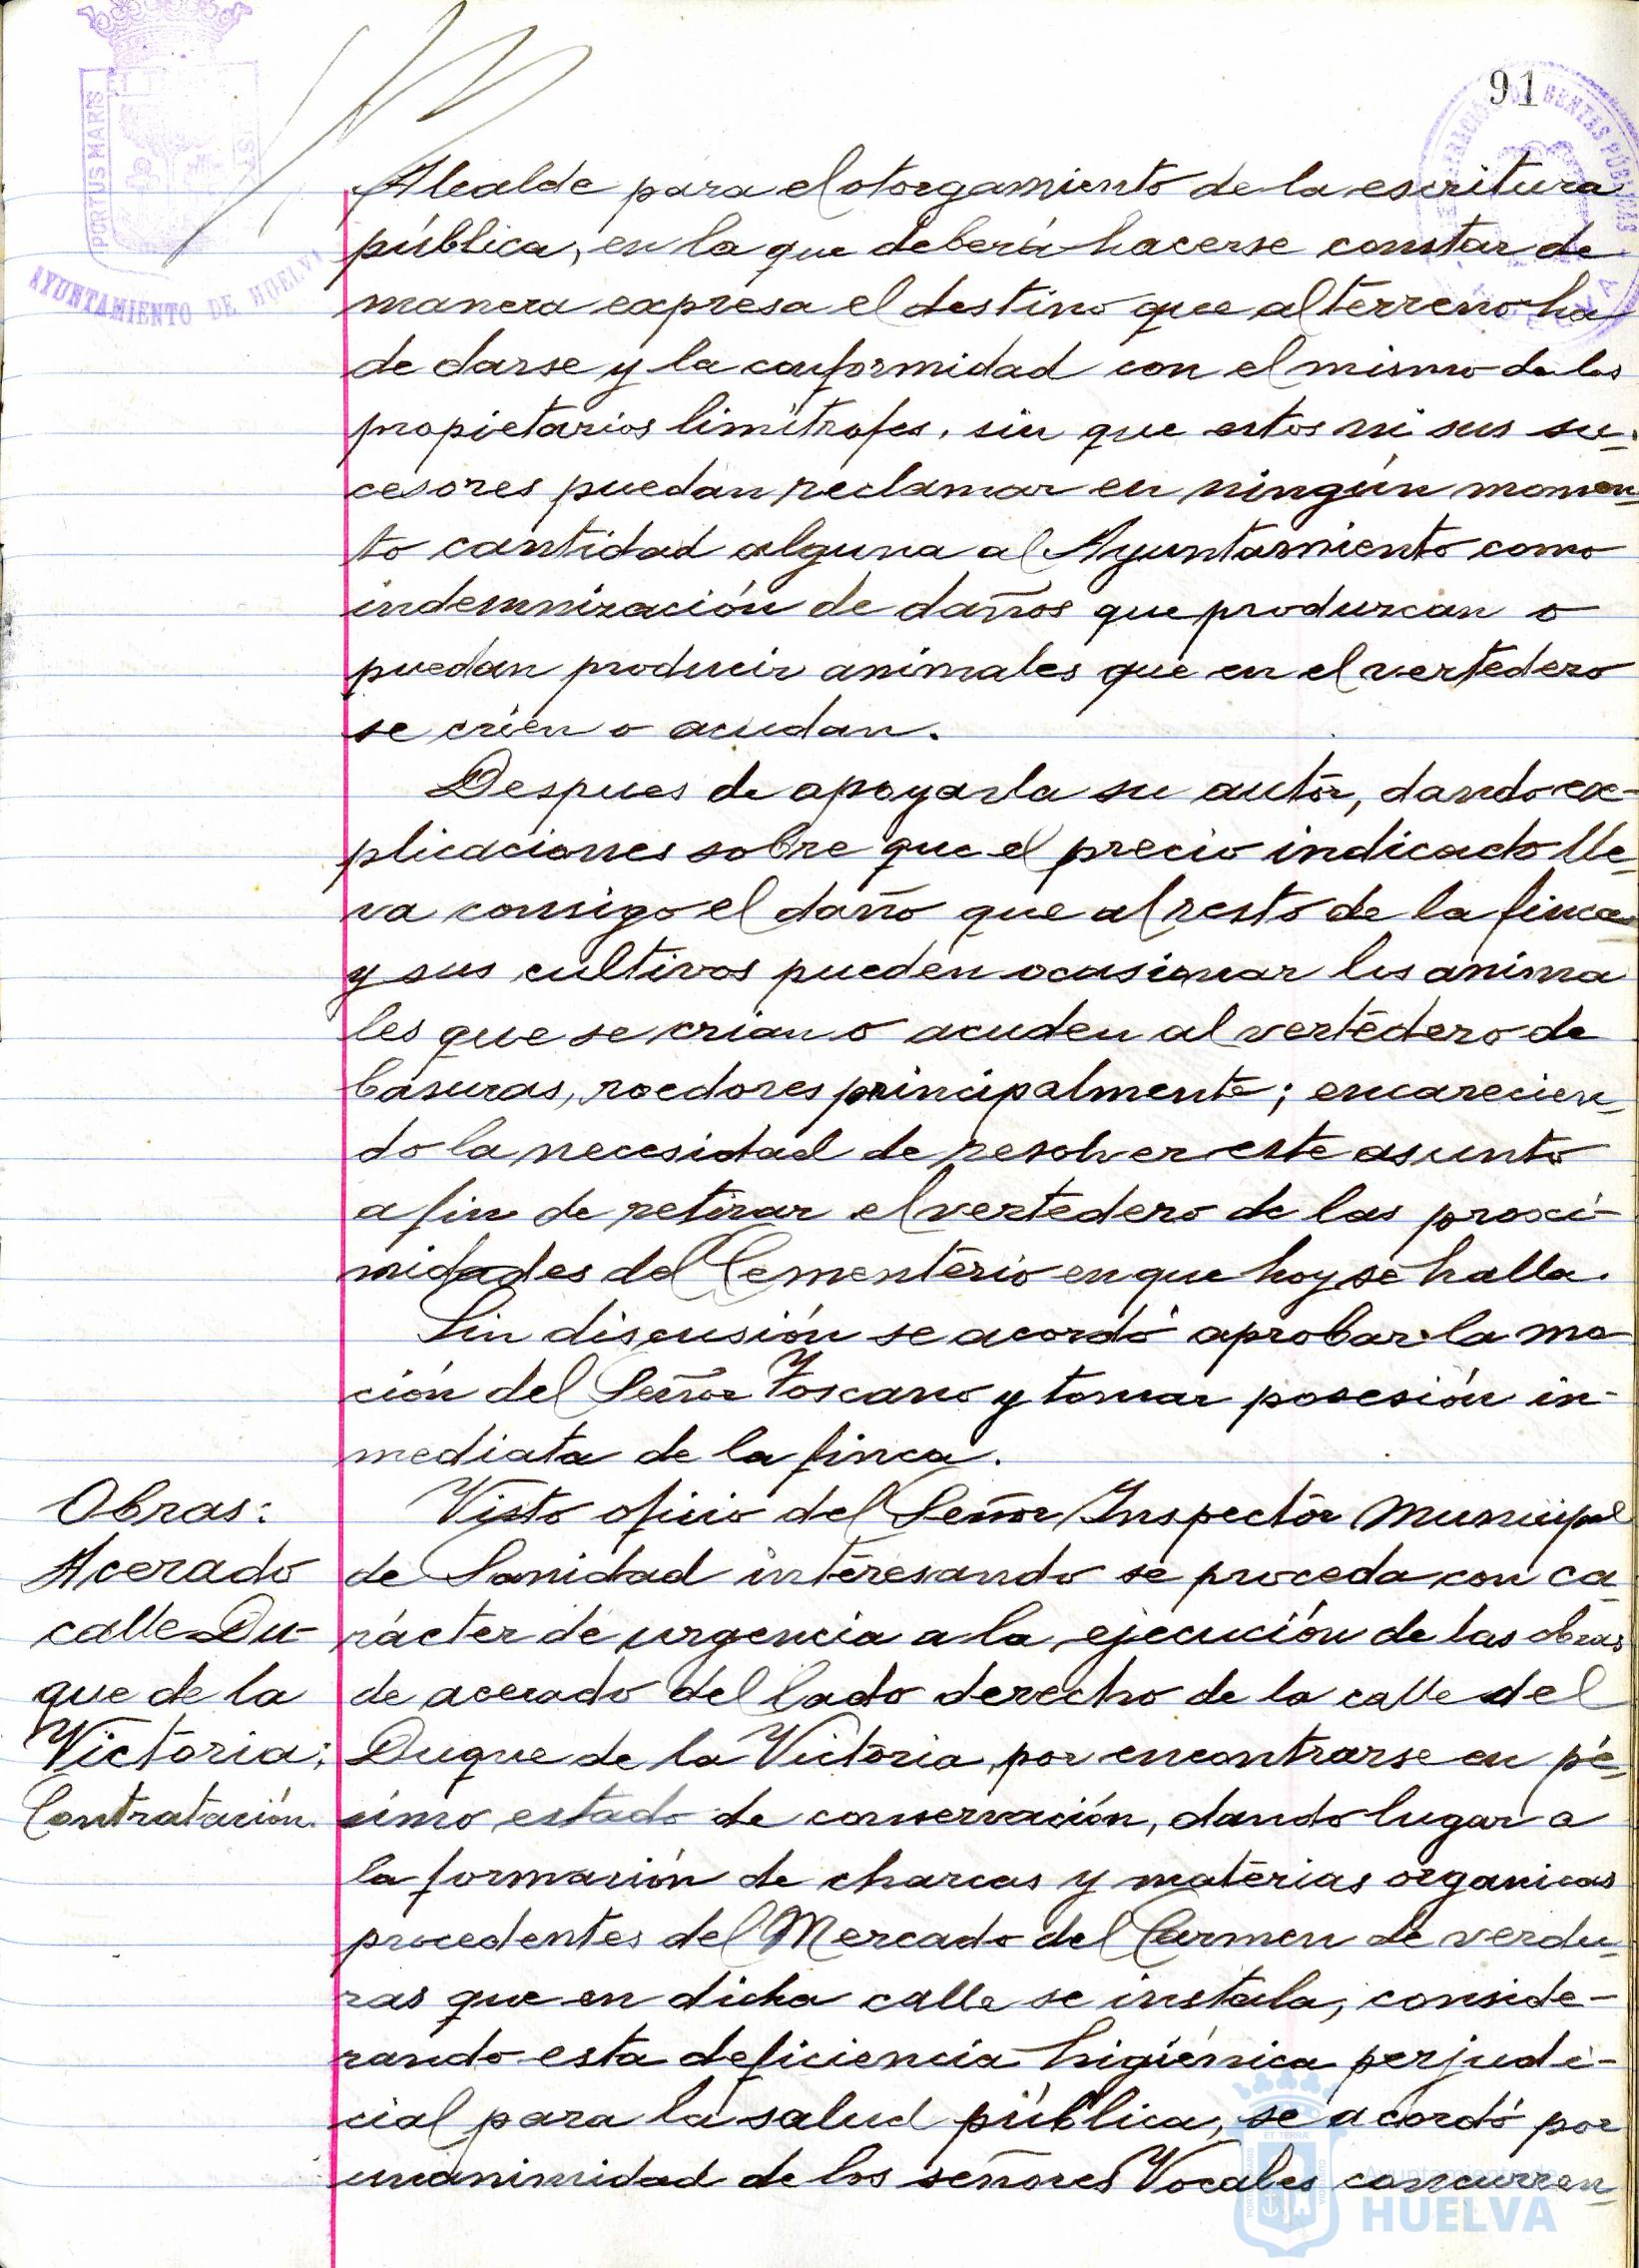 91
PORTUS MARIS
ET TERRÆ
AYUNTAMIENTO DE HUELVA
Alcalde para el otorgamiento de la escritura
pública, en la que deberá hacerse constar de
manera expresa el destino que al terreno ha
de darse y la conformidad con el mismo de los
propietarios limítrofes, sin que estos ni sus su-
cesores puedan reclamar en ningún momen-
to cantidad alguna al Ayuntamiento como
indemnización de daños que produzcan o
puedan producir animales que en el vertedero
se crien o acudan.
Despues de apoyarla su autor, dando ex-
plicaciones sobre que el precio indicado lle-
va consigo el daño que al resto de la finca
y sus cultivos pueden ocasionar los anima
les que se crian o acuden al vertedero de
basuras, roedores principalmente; encarecien-
do la necesidad de resolver este asunto
a fin de retirar el vertedero de las proxi-
midades del Cementerio en que hoy se halla.
Sin discusión se acordó aprobar la mo-
ción del Señor Toscano y tomar posesión in-
mediata de la finca.
Obras:
Acerado
calle Du-
que de la
Victoria:
Contratación.
Visto oficio del Señor Inspector Municipal
de Sanidad interesando se proceda con ca-
rácter de urgencia a la ejecución de las obras
de acerado del lado derecho de la calle del
Duque de la Victoria, por encontrarse en pé-
simo estado de conservación, dando lugar a
la formación de charcas y materias organicas
procedentes del Mercado del Carmen de verdu-
ras que en dicha calle se instala, conside-
rando esta deficiencia higiénica perjudi-
cial para la salud pública, se acordó por
unanimidad de los señores Vocales concurren-
Ayuntamiento de
HUELVA